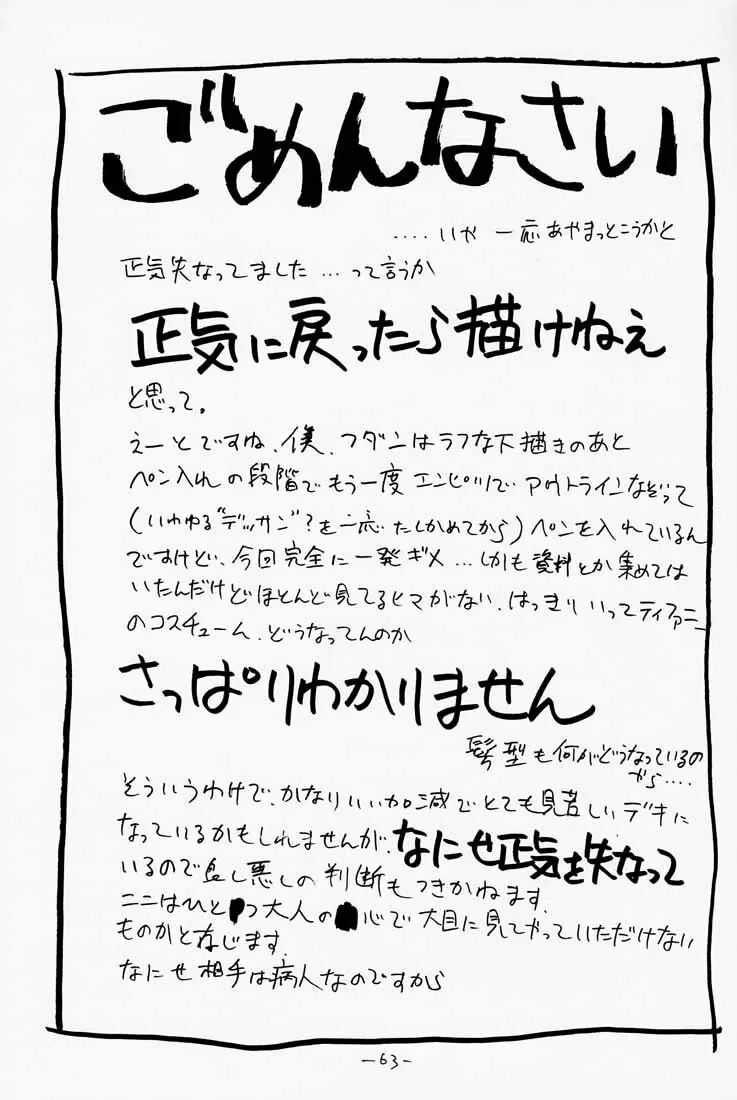 ごめんなさい
....いや 一応あやまっとこうかと
正気失なってました...って言うか
正気に戻ったら描けねえ
と思って。
えーとですね、僕、フダンはラフな下描きのあと
ペン入れの段階でもう一度エンピツで アウトラインなぞって
(いわゆる"デッサン"?を一応 たしかめてから)ペンを入れているん
ですけど、今回完全に一発ギメ...しかも資料とか集めては
いたんだけどほとんど見てるヒマがない、はっきりいってティファニー
のコスチューム、どうなってんのか
さっぱりわかりません
髪型も何がどうなっているの
やら....
そういうわけで、かなりいい加減でとても見苦しいデキに
なっているかもしれませんが、なにせ正気を失なって
いるので良し悪しの判断もつきかねます.
ここはひとつ大人の心で大目に見てやっていただけない
ものかと存じます.
なにせ相手は病人なのですから
-63-